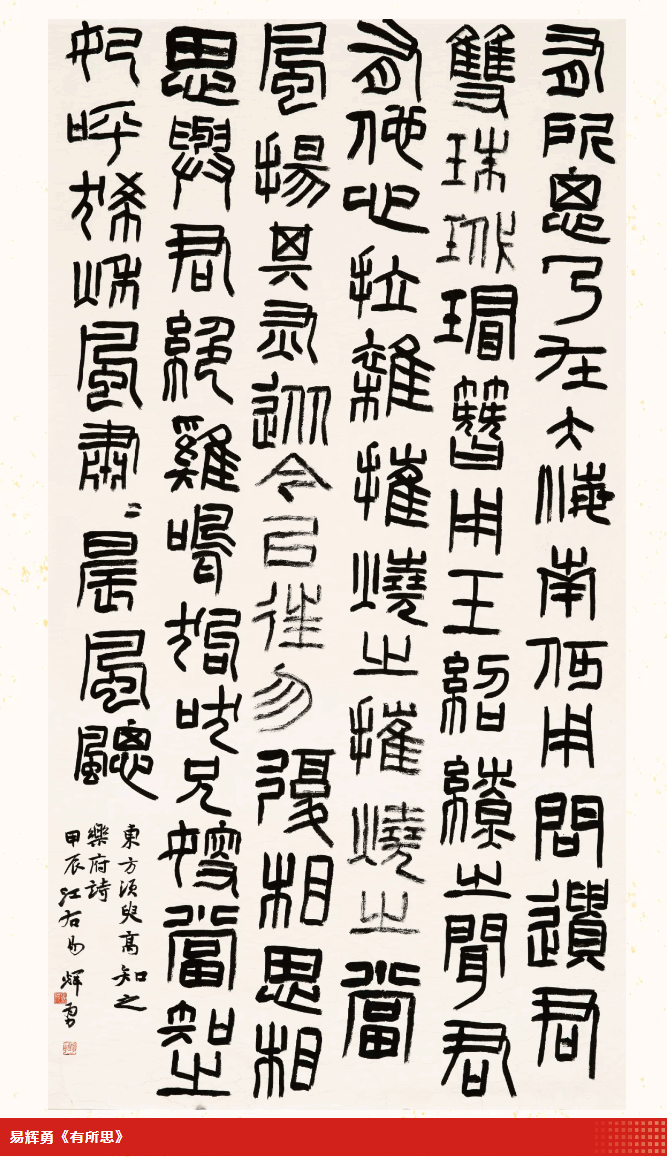 有所思乃在大海南何用問遺君
雙珠瑇瑁簪用玉紹繚之聞君
有他心拉雜摧燒之摧燒之當
風揚其灰從今以往勿復相思相
思與君絕雞鳴狗吠兄嫂當知之
妃呼狶秋風肅〻晨風颸
東方須臾高知之
樂府詩
甲辰江右易輝勇
易辉勇《有所思》